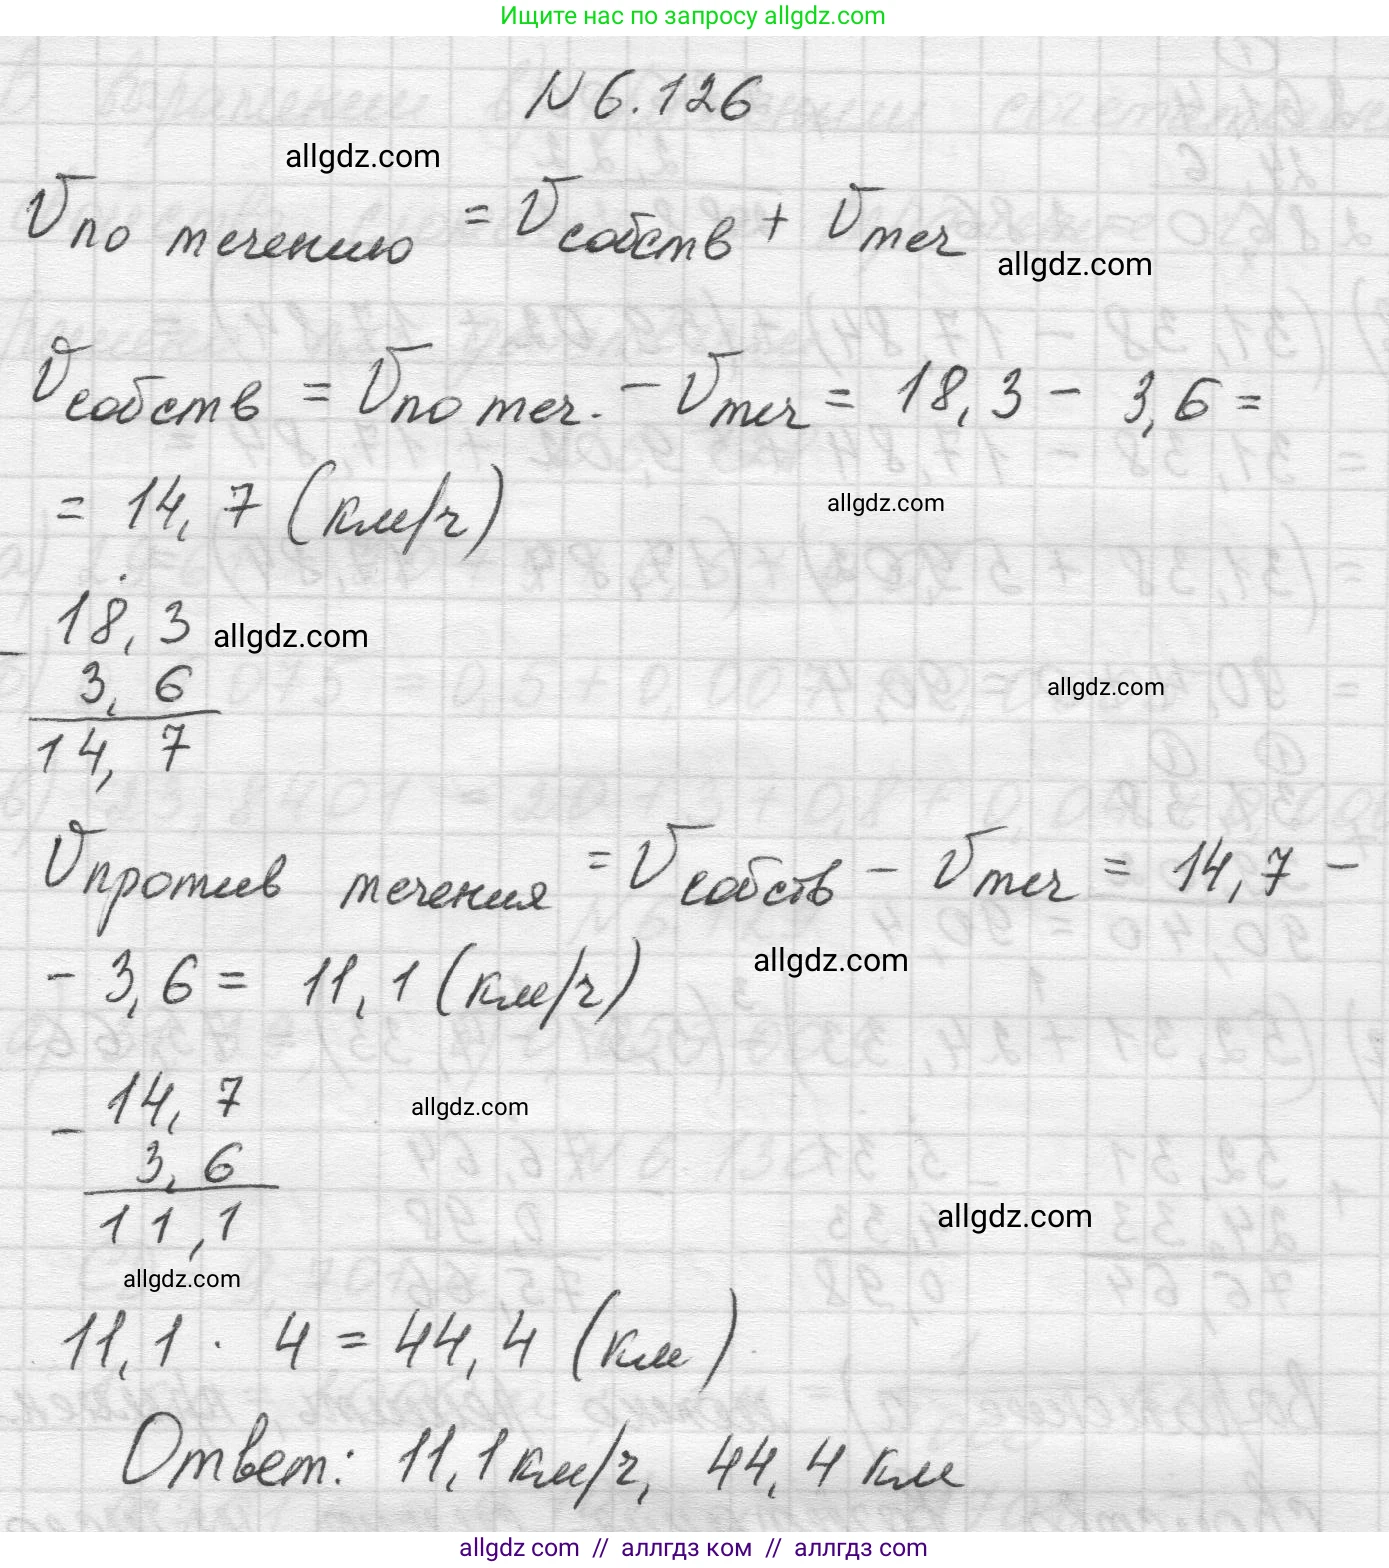 Ищите нас по запросу allgdz.com
N 6.126
allgdz.com
Vпо течению = Vсобств + Vтеч
allgdz.com
Vсобств = Vпо теч. - Vтеч = 18,3 - 3,6 =
= 14,7 (км/ч)
allgdz.com
18,3
allgdz.com
-
3,6
allgdz.com
14,7
Vпротив течения = Vсобств - Vтеч = 14,7 -
- 3,6 = 11,1 (км/ч)
allgdz.com
14,7
allgdz.com
-
3,6
11,1
allgdz.com
allgdz.com
11,1 · 4 = 44,4 (км)
Ответ: 11,1 км/ч, 44,4 км
allgdz.com // аллгдз ком // аллгдз com